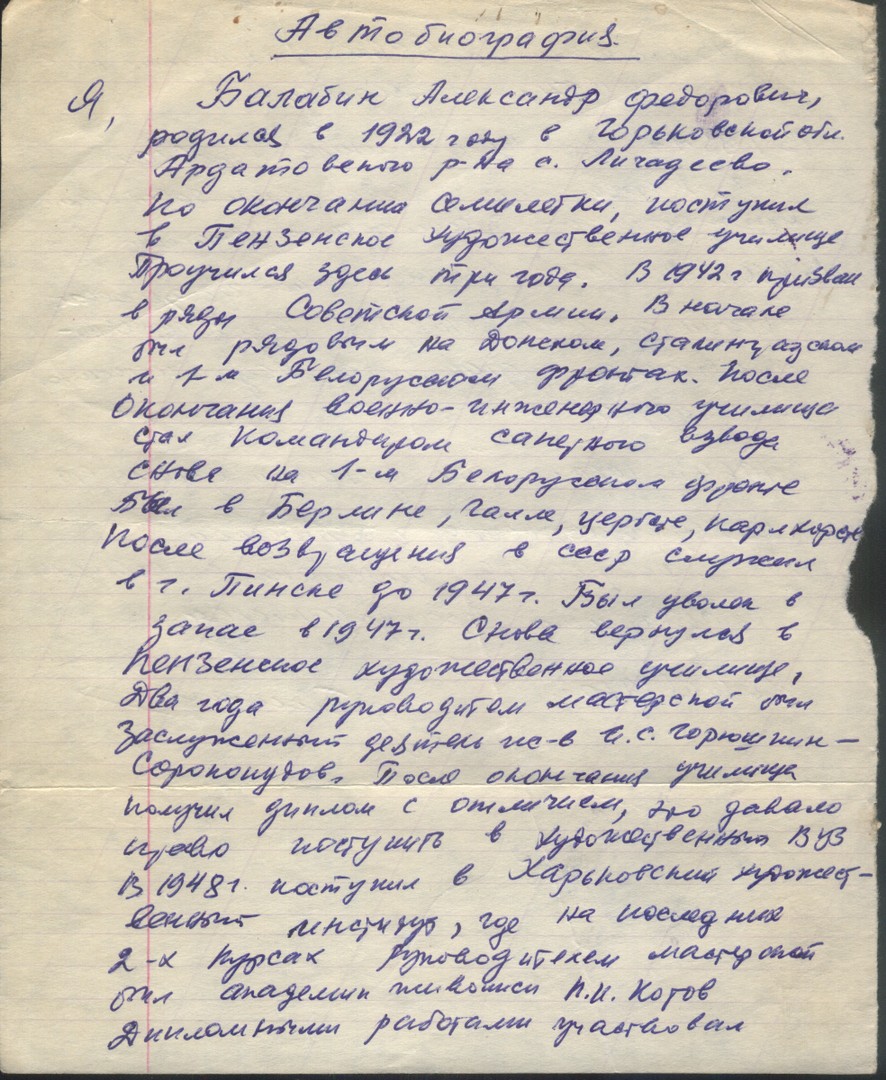 Автобиография.
Я, Балабин Александр Федорович,
родился в 1922 году в Горьковской обл.
Ардатовского р-на с. Личадеево.
По окончании семилетки, поступил
в Пензенское художественное училище
Проучился здесь три года. В 1942 г призван
в ряды Советской Армии. В начале
был рядовым на Донском, Сталинградском
и 1-м Белорусском фронтах. После
окончания военно-инженерного училища
стал командиром саперного взвода
снова на 1-м Белорусском фронте
Был в Берлине, Галле, Цербсте, Карлхорсте
После возвращения в СССР служил
в г. Пинске до 1947 г. Был уволен в
запас в 1947 г. Снова вернулся в
Пензенское художественное училище,
Два года руководителем мастерской был
Заслуженный деятель ис-в И.С. Горюшкин-
Сорокопудов. После окончания училища
получил диплом с отличием, это давало
право поступить в художественный ВУЗ
В 1948 г. поступил в Харьковский художест-
венный институт, где на последних
2-х курсах руководителем мастерской
был академик живописи П.И. Котов
Дипломными работами участвовал